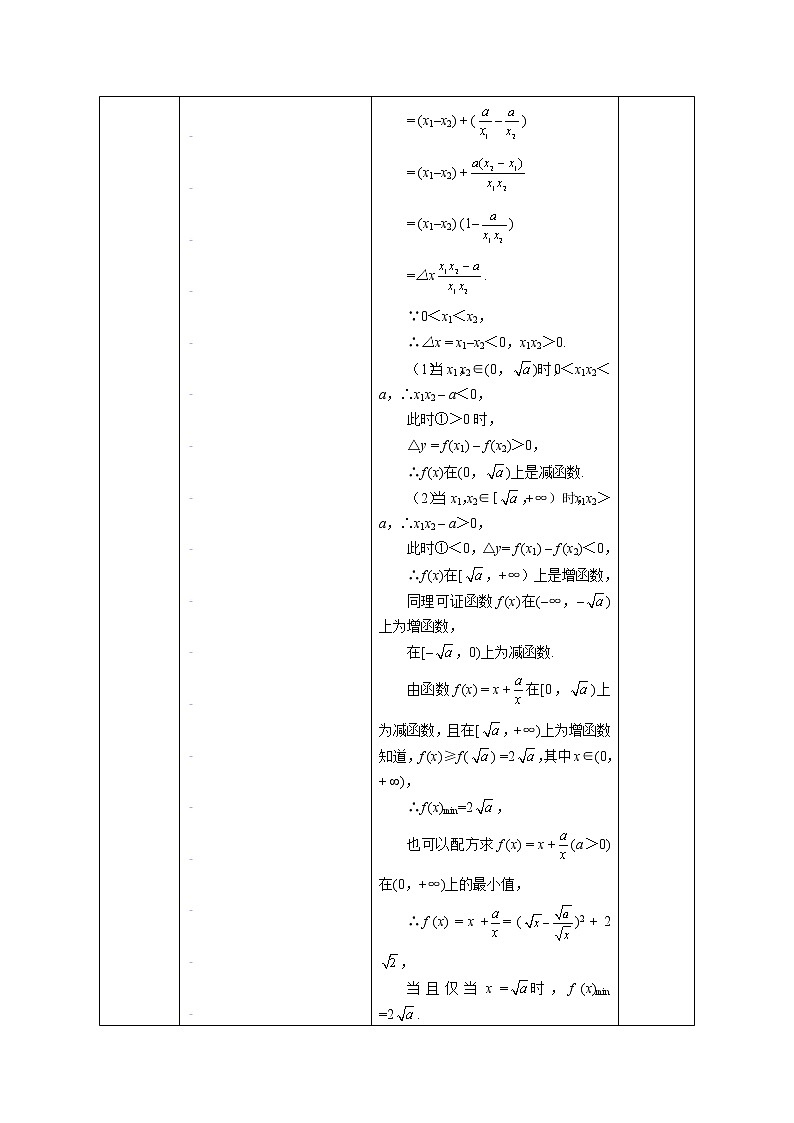 = (x₁–x₂) + (a/x₁ – a/x₂)
= (x₁–x₂) + a(x₂ – x₁)/x₁x₂
= (x₁–x₂) (1– a/x₁x₂)
=△x (x₁x₂ – a)/x₁x₂ .
∵0＜x₁＜x₂，
∴△x = x₁–x₂＜0，x₁x₂＞0.
（1）当 x₁,x₂∈(0，√a)时,0＜x₁x₂＜
a，∴x₁x₂ – a＜0，
此时①＞0 时，
△y = f (x₁) – f (x₂)＞0，
∴f (x)在(0，√a)上是减函数.
（2）当 x₁,x₂∈[√a,+∞）时,x₁x₂＞
a，∴x₁x₂ – a＞0，
此时①＜0，△y= f (x₁) – f (x₂)＜0，
∴f (x)在[√a，+∞）上是增函数，
同理可证函数 f (x)在(–∞，–√a)
上为增函数，
在[–√a，0)上为减函数.
由函数 f (x) = x + a/x 在[0，√a)上
为减函数，且在[√a，+∞)上为增函数
知道，f (x)≥f(√a) =2√a，其中x∈(0，
+∞)，
∴f (x)min=2√a，
也可以配方求 f (x) = x + a/x (a＞0)
在(0，+∞)上的最小值，
∴f (x) = x + a/x = (√x – √a/√x)² + 2
√2，
当且仅当 x =√a时，f (x)min
=2√a.